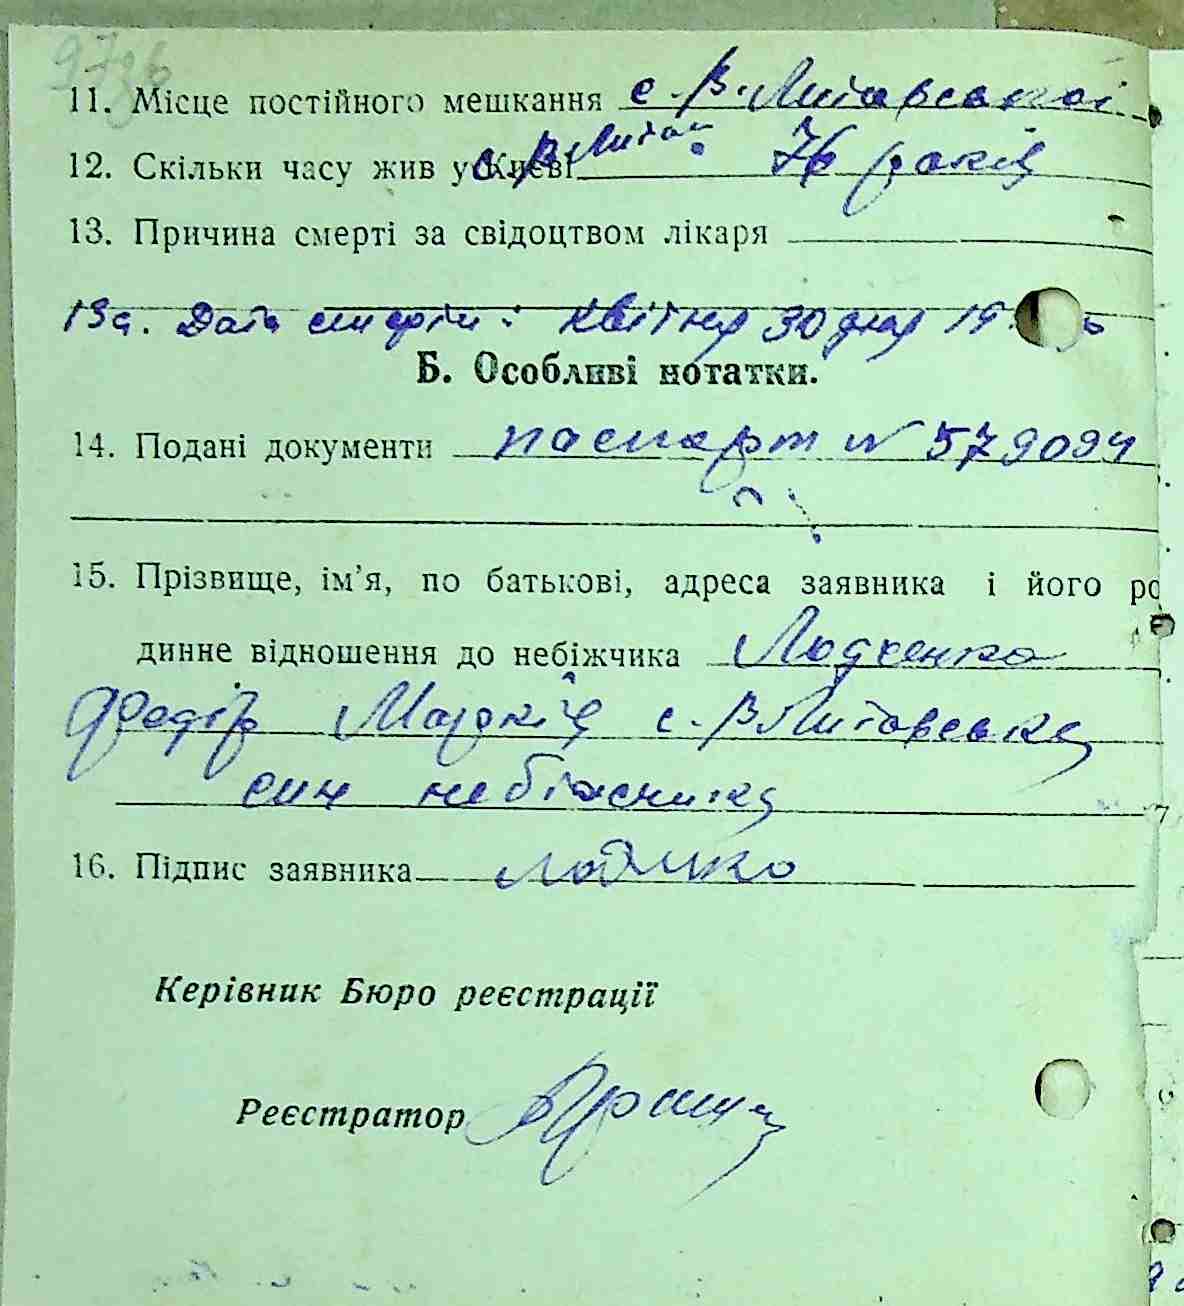 11. Місце постійного мешкання с. В. Литовської
12. Скільки часу жив у Києві с. В Литов. 76 років
13. Причина смерті за свідоцтвом лікаря
13а. Дата смерти: квітня 30 дня 19
Б. Особливі нотатки.
14. Подані документи паспорт N 579094
15. Прізвище, ім’я, по батькові, адреса заявника і його ро
динне відношення до небіжчика Лодченко
Федір Марків с. В Литовська
син небіжчика
16. Підпис заявника
Керівник Бюро реєстрації
Реєстратор